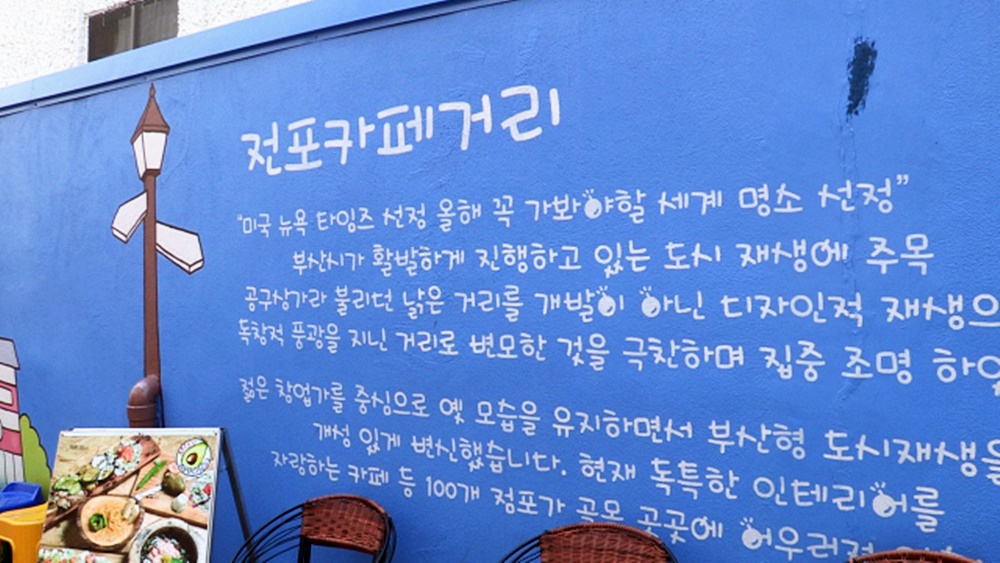 전포카페거리
"미국 뉴욕 타임즈 선정 올해 꼭 가봐야할 세계 명소 선정"
부산시가 활발하게 진행하고 있는 도시 재생에 주목
공구상가라 불리던 낡은 거리를 개발이 아닌 디자인적 재생으
독창적 풍광을 지닌 거리로 변모한 것을 극찬하며 집중 조명 하였
젊은 창업가를 중심으로 옛 모습을 유지하면서 부산형 도시재생을
개성 있게 변신했습니다. 현재 독특한 인테리어를
자랑하는 카페 등 100개 점포가 골목 곳곳에 어우러져